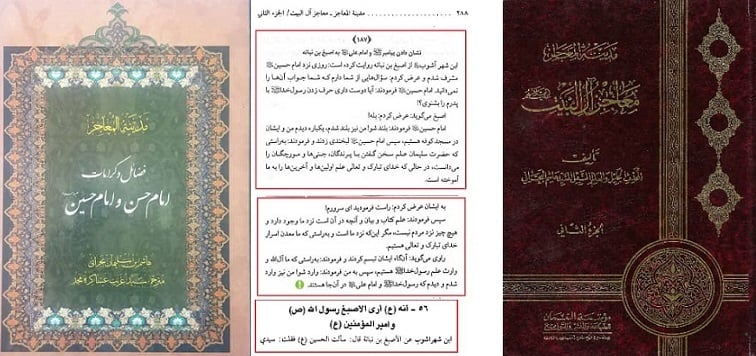 مدینة المعاجز
فضائل و کرامات
امام حسن و امام حسین
هاشم بن سلیمان بحرانی
۲۸۸ ........ مدینة المعاجز ـ معاجز آل البیت / الجزء الثانی
(۱۸۷)
نشان دادن پیامبر ﷺ و امام علی ﷷ به اصبغ بن نباته
ابن شهر آشوب از اصبغ بن نباته روایت کرده است: روزی نزد امام حسین
مشرف شدم و عرض کردم: سؤال‌هایی از شما دارم که شما جواب آن‌ها را
می‌دانید. امام حسین فرمودند: آیا دوست داری حرف زدن رسول خدا ﷺ با
پدرم را بشنوی؟!
اصبغ می‌گوید: عرض کردم: بله!
امام حسین فرمودند: بلند شو! من نیز بلند شدم، یکباره دیدم من و ایشان
در مسجد کوفه هستیم، پس امام حسین لبخندی زدند و فرمودند: به‌راستی
که حضرت سلیمان علم سخن گفتن با پرندگان، جنی‌ها و مورچگان را
می‌دانست، در حالی که خدای تبارک و تعالی علم اولین‌ها و آخرین‌ها را به ما
آموخته است.
به ایشان عرض کردم: راست فرمودید ای سرورم!
سپس فرمودند: علم کتاب و بیان و آنچه در آن است نزد ما وجود دارد و
هیچ چیز نزد مردم نیست، مگر این‌که نزد ما است و به‌راستی که ما معدن اسرار
خدای تبارک و تعالی هستیم.
راوی می‌گوید: آنگاه ایشان تبسم کردند و فرمودند: به‌راستی که ما آل‌الله و
وارث علم رسول خدا ﷺ هستیم، سپس به من فرمودند: وارد شو! من نیز وارد
شدم و دیدم که رسول خدا ﷺ و امام علی در آن‌جا هستند.
۵۶ - أنه (ع) أرى الأصبغ رسول الله (ص)
و امیر المؤمنین (ع)
ابن شهراشوب عن الأصبغ بن نباتة قال: سألت الحسین (ع) فقلت: سیدي
مدینة المعاجز
معاجز آل البیت
تألیف
الجزء الثانی